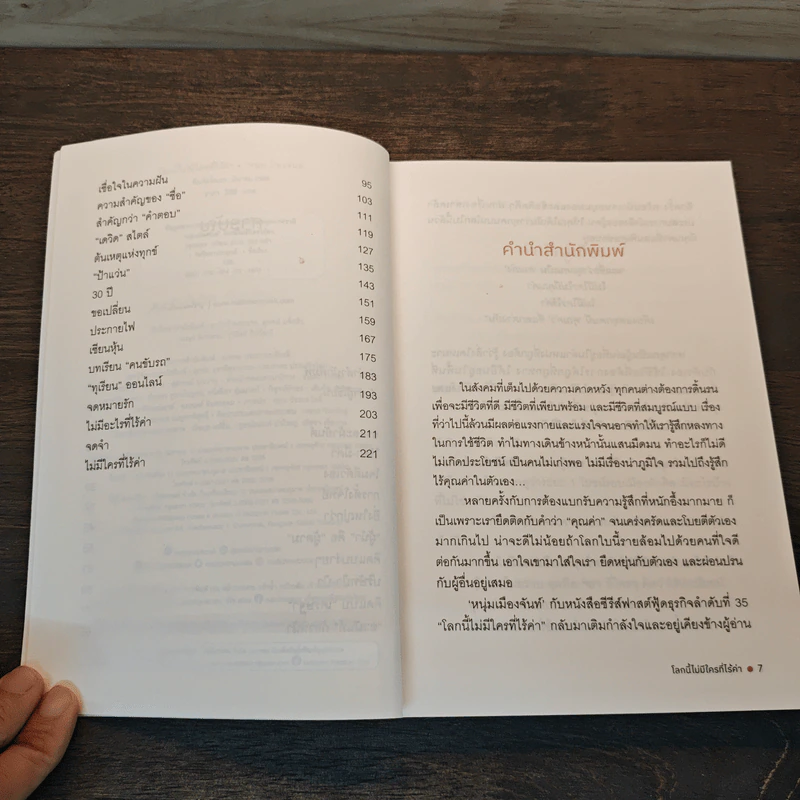 เชื่อใจในความฝัน 95
ความสำคัญของ “ชื่อ” 103
สำคัญกว่า “คำตอบ” 111
“เดวิด” สไตล์ 119
ต้นเหตุแห่งทุกข์ 127
“ป้าแว่น” 135
30 ปี 143
ขอเปลี่ยน 151
ประกายไฟ 159
เซียนหุ้น 167
บทเรียน “คนขับรถ” 175
“ทุเรียน” ออนไลน์ 183
จดหมายรัก 193
ไม่มีอะไรที่ไร้ค่า 203
จดจำ 211
ไม่มีใครที่ไร้ค่า 221
คำนำสำนักพิมพ์
ในสังคมที่เต็มไปด้วยความคาดหวัง ทุกคนต่างต้องการดิ้นรน
เพื่อจะมีชีวิตที่ดี มีชีวิตที่เพียบพร้อม และมีชีวิตที่สมบูรณ์แบบ เรื่อง
ที่ว่าไปนี้ล้วนมีผลต่อแรงกายและแรงใจจนอาจทำให้เรารู้สึกหลงทาง
ในการใช้ชีวิต ทำไมทางเดินข้างหน้านั้นแสนมืดมน ทำอะไรก็ไม่ดี
ไม่เกิดประโยชน์ เป็นคนไม่เก่งพอ ไม่มีเรื่องน่าภูมิใจ รวมไปถึงรู้สึก
ไร้คุณค่าในตัวเอง...
หลายครั้งกับการต้องแบกรับความรู้สึกที่หนักอึ้งมากมาย ก็
เป็นเพราะเรายึดติดกับคำว่า “คุณค่า” จนเคร่งครัดและโบยตีตัวเอง
มากเกินไป น่าจะดีไม่น้อยถ้าโลกใบนี้รายล้อมไปด้วยคนที่ใจดี
ต่อกันมากขึ้น เอาใจเขามาใส่ใจเรา ยืดหยุ่นกับตัวเอง และผ่อนปรน
กับผู้อื่นอยู่เสมอ
‘หนุ่มเมืองจันท์’ กับหนังสือซีรีส์ฟาสต์ฟู้ดธุรกิจลำดับที่ 35
“โลกนี้ไม่มีใครที่ไร้ค่า” กลับมาเติมกำลังใจและอยู่เคียงข้างผู้อ่าน
โลกนี้ไม่มีใครที่ไร้ค่า ● 7